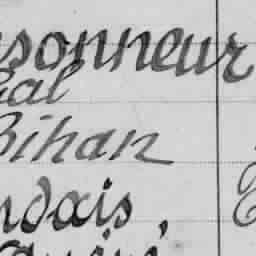 sonneur
al
Bihan
ndais,